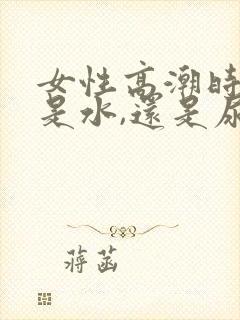 女性高潮時
是水,還是尿
蔣菡